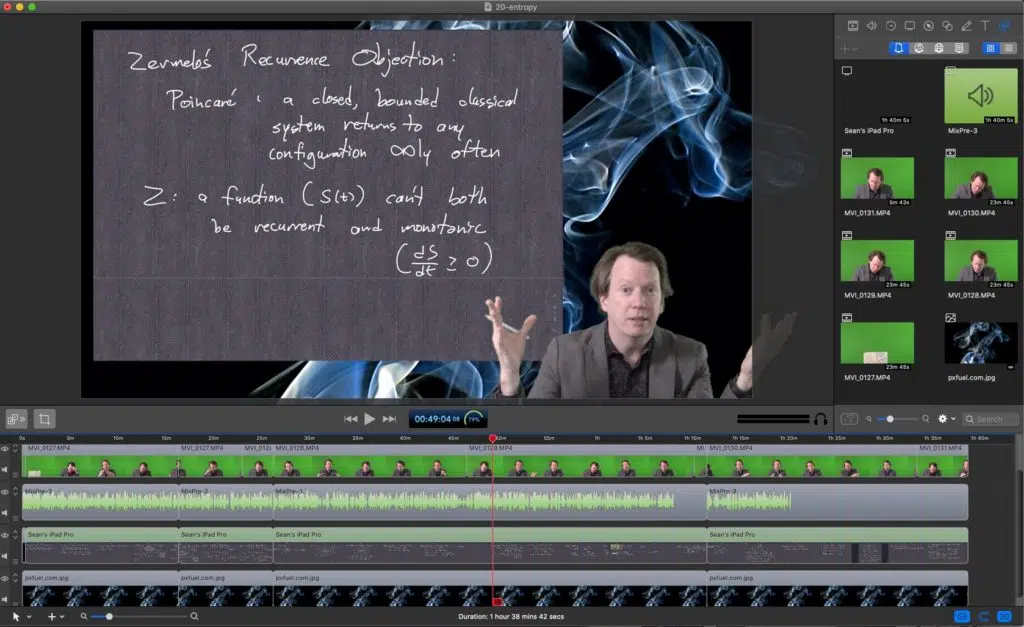 20-entropy
Zermelo's Recurrence Objection:
Poincaré: a closed, bounded classical
system returns to any
configuration ∞ly often
Z: a function (S(t)) can't both
be recurrent and monotonic
(dS/dt ≥ 0)
1h 40m 5s
1h 40m 5s
Sean's iPad Pro
MixPre-3
5m 43s
23m 45s
MVI_0131.MP4
MVI_0130.MP4
23m 45s
23m 45s
MVI_0129.MP4
MVI_0128.MP4
23m 45s
∞
MVI_0127.MP4
pxfuel.com.jpg
00:49:04
79%
Search
0s 5m 10m 15m 20m 25m 30m 35m 40m 45m 50m 55m 1h 1h 5m 1h 10m 1h 15m 1h 20m 1h 25m 1h 30m 1h 35m 1h 40m
MVI_0127.MP4 MVI_0127.MP4 MVI_0128.MP4 MVI_0130.MP4 MVI_0131.MP4
MixPre-3 MixPre-3 MixPre-3 MixPre-3
Sean's iPad Pro Sean's iPad Pro Sean's iPad Pro Sean's iPad Pro
pxfuel.com.jpg pxfuel.com.jpg pxfuel.com.jpg pxfuel.com.jpg
Duration: 1 hour 38 mins 42 secs